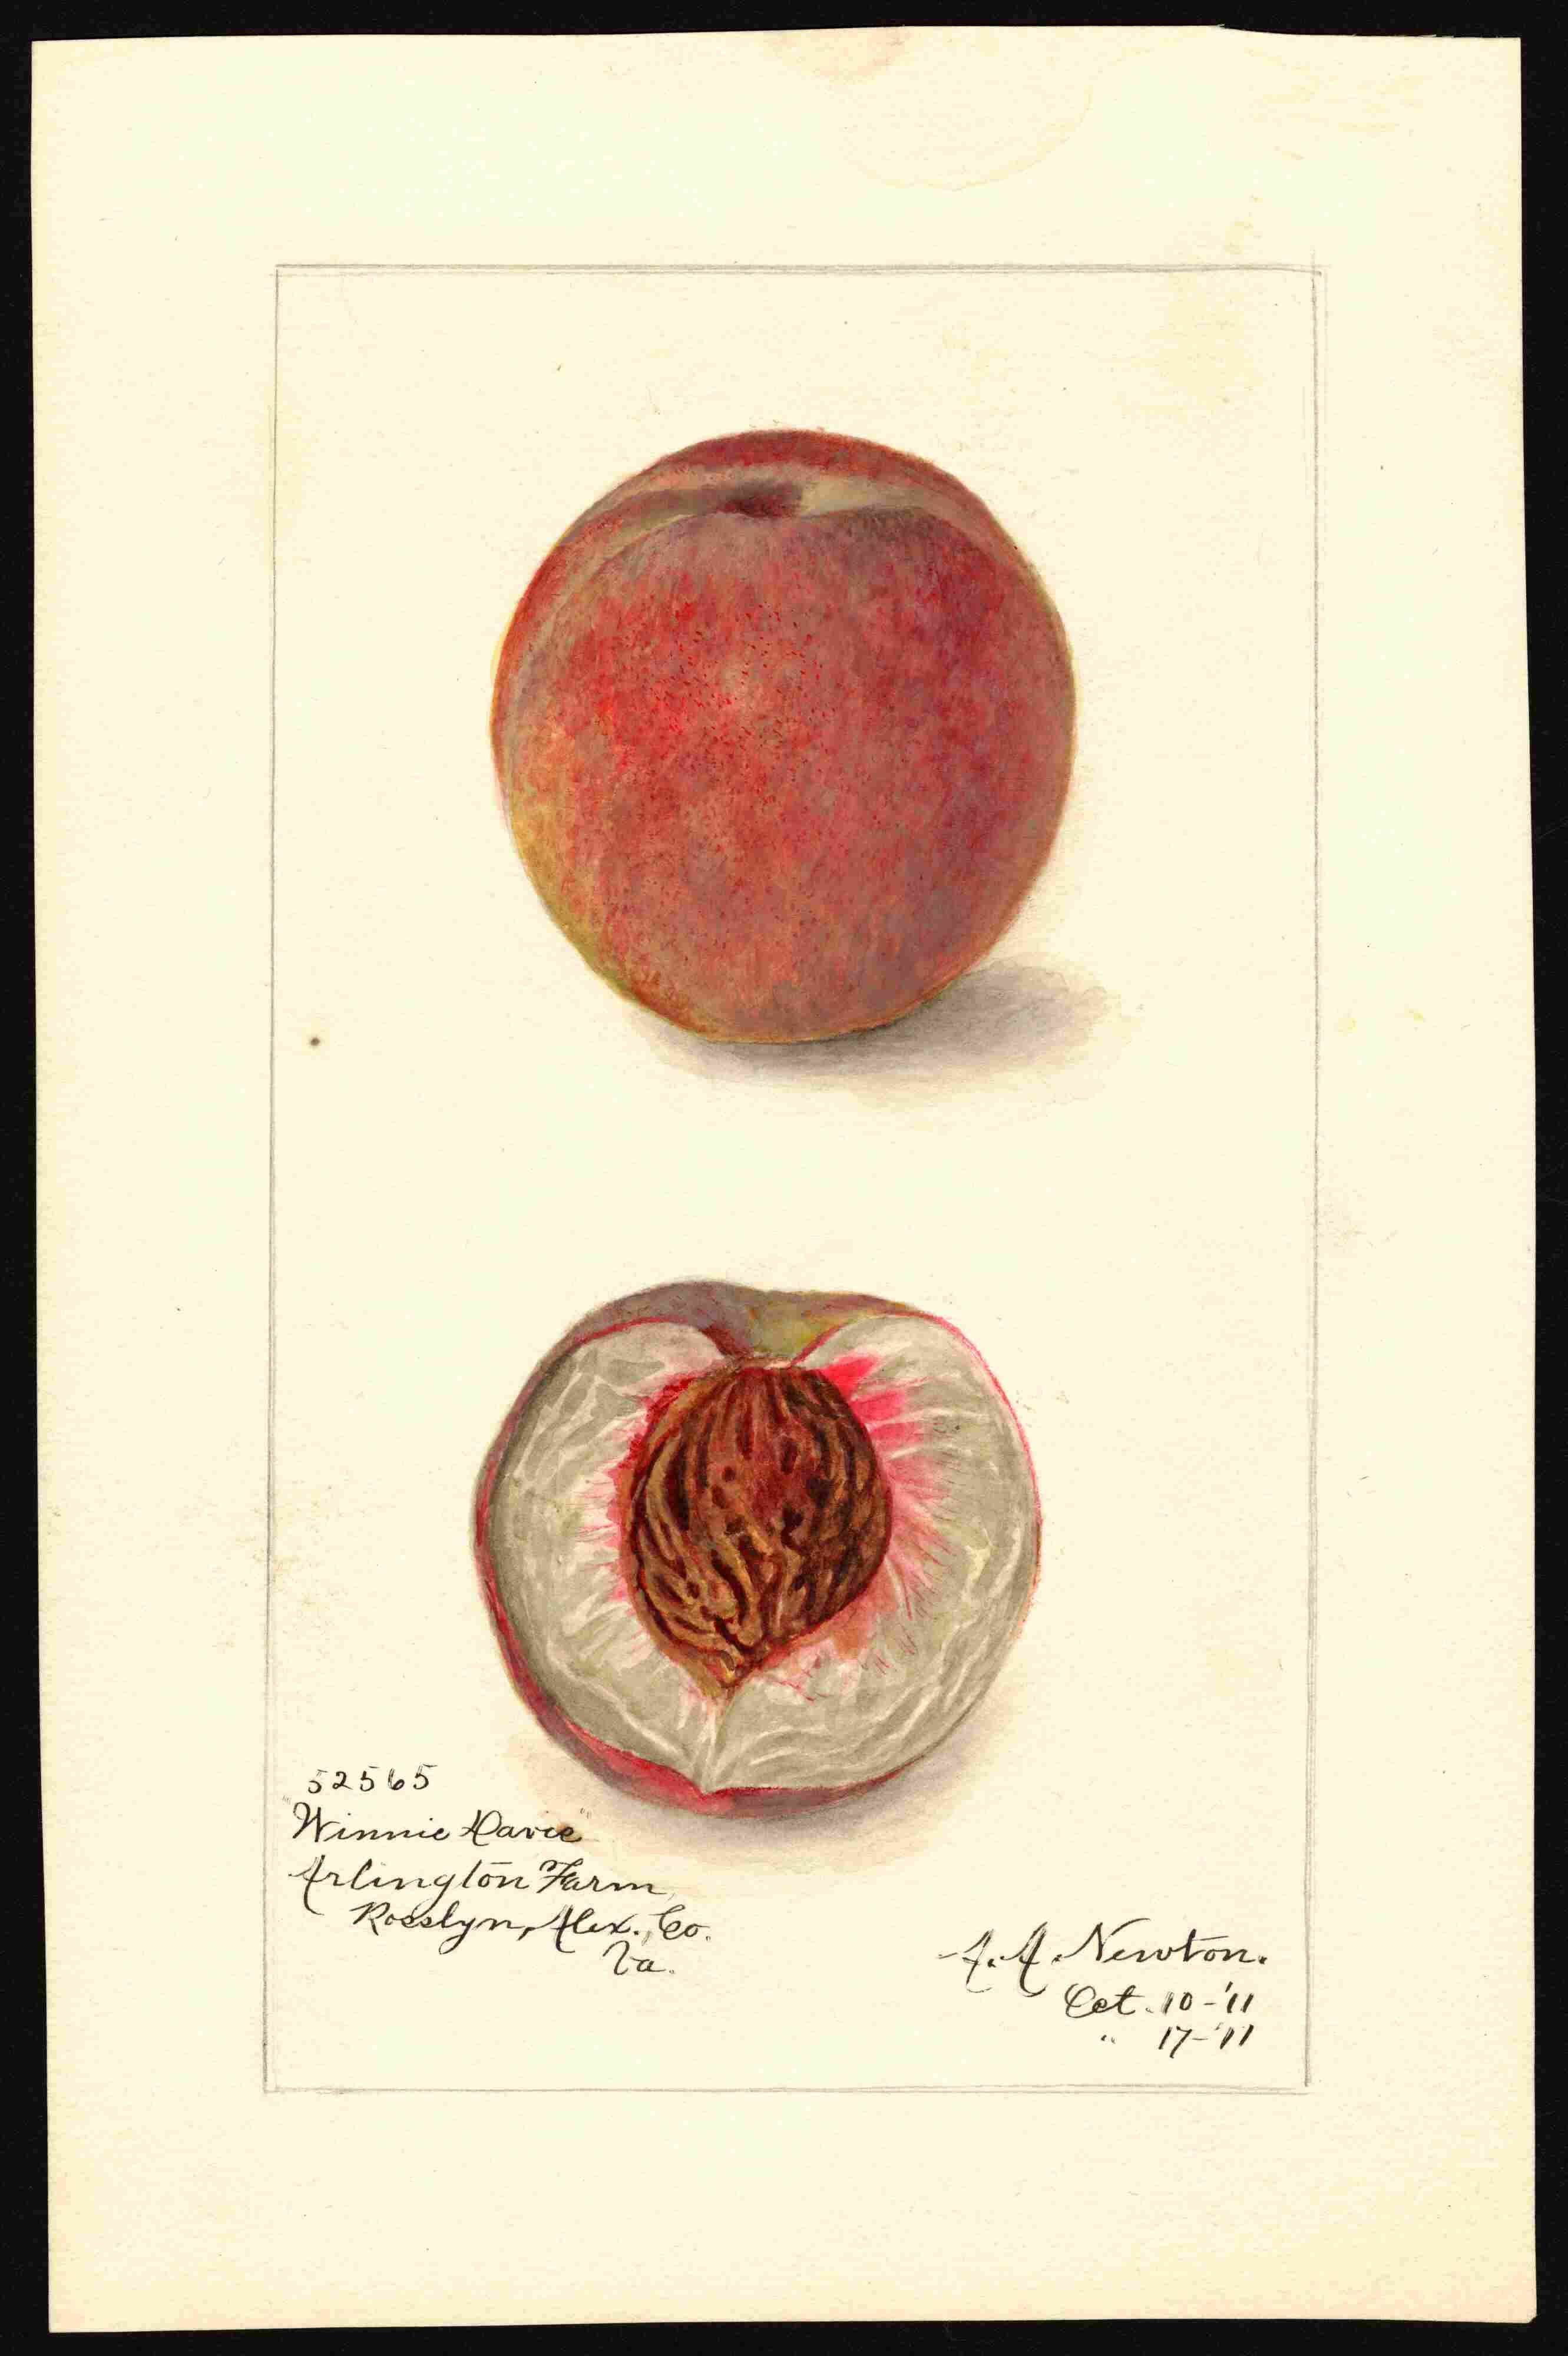 52565
"Winnie Davie"
Arlington Farm,
Rosslyn, Alex. Co.
Va.
A. A. Newton.
Oct. 10-'11
" 17-'11